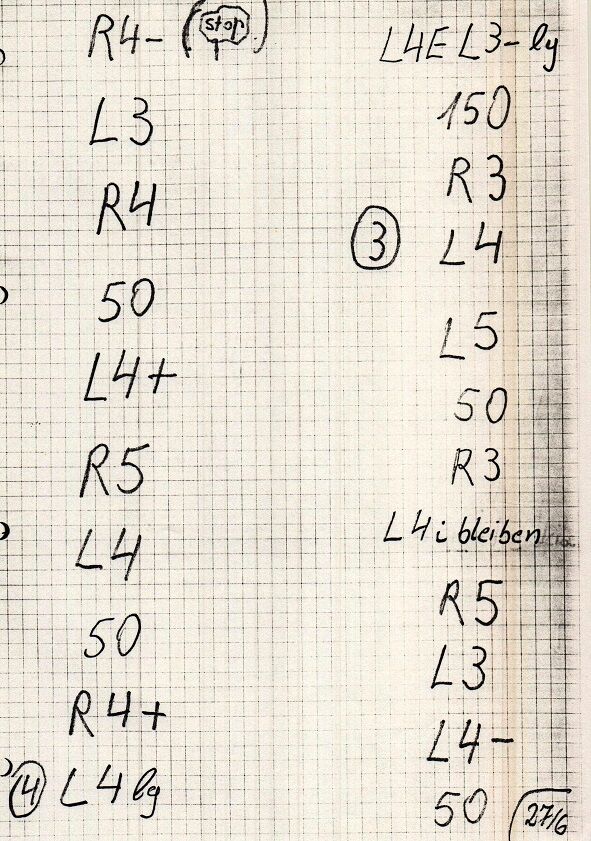 R4- (stop)
L3
R4
50
L4+
R5
L4
50
R4+
④ L4 lg
L4E L3- lg
150
R3
③ L4
L5
50
R3
L4 i bleiben
R5
L3
L4-
50
27/6